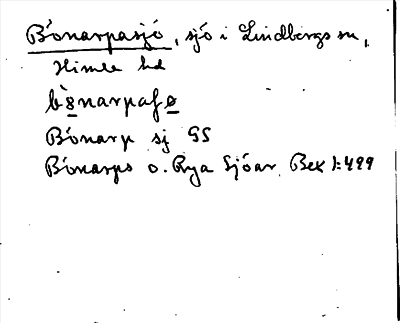 Bönarpasjö, sjö i Lindbergs sn,
Himle hd
bö̀narpasø
Bönarp sj GS
Bönarps o. Rya Sjöar Bex 1:499